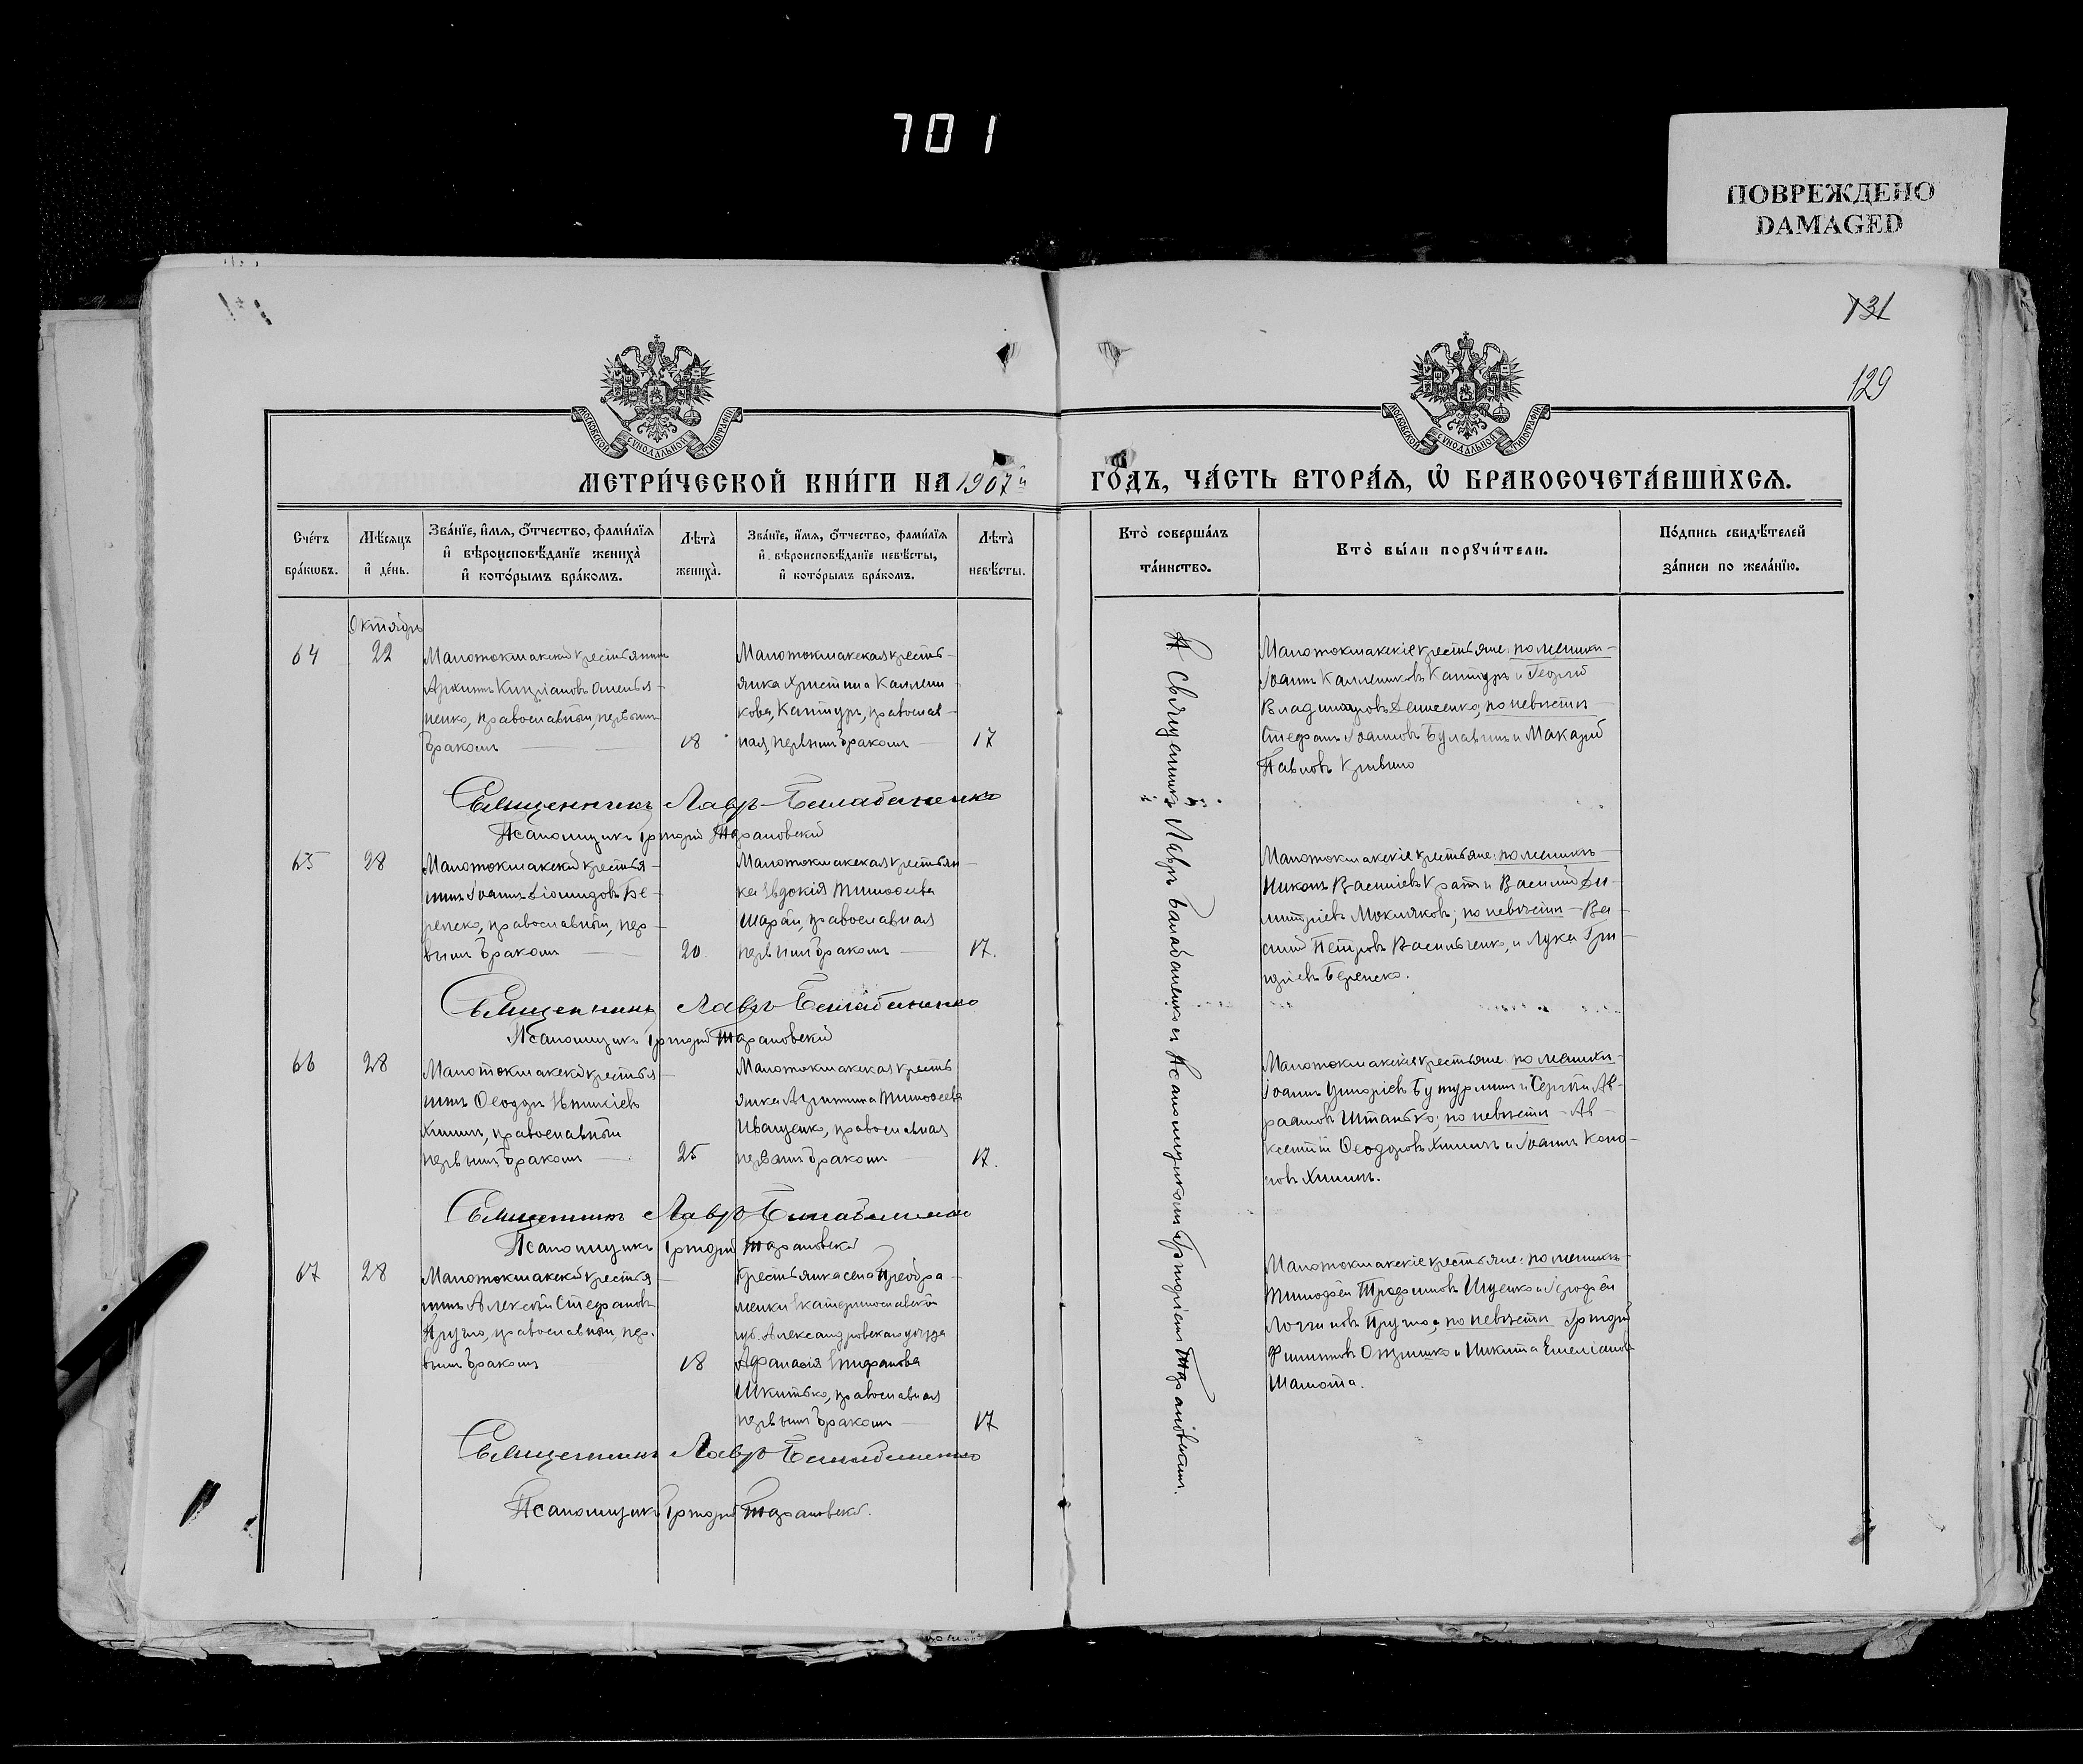 701
ПОВРЕЖДЕНО
DAMAGED
131
129
МОСКОВСКОЙ СѴНОДАЛЬНОЙ ТИПОГРАФІИ
МОСКОВСКОЙ СѴНОДАЛЬНОЙ ТИПОГРАФІИ
МЕТРИ́ЧЕСКОЙ КНИ́ГИ НА 1907й
ГО́ДЪ, ЧА́СТЬ ВТОРА́Ѧ, Ѡ҆ БРАКОСОЧЕТА́ВШИХСѦ.
Сче́тъ
бра́кѡвъ.
Мѣ́сѧцъ
и҆ де́нь.
Зва́нїе, и҆́мѧ, ѻ҆́тчество, фами́лїѧ
и҆ вѣроисповѣ́данїе жениха̀
и҆ кото́рымъ бра́комъ.
Лѣ́та̀
жениха̀.
Зва́нїе, и҆́мѧ, ѻ҆́тчество, фами́лїѧ
и҆ вѣроисповѣ́данїе невѣ́сты,
и҆ кото́рымъ бра́комъ.
Лѣ́та̀
невѣ́сты.
Кто̀ соверша́лъ
та́инство.
Кто̀ бы́ли порꙋчи́тели.
По́дпись свидѣ́телей
за́писи по жела́нїю.
Октябрь
64
22
Малотокмакскій крестьянинъ
Архипъ Кипріановъ Омелья-
ненко, православный, первымъ
бракомъ
18
Малотокмакская кресть-
янка Христина Каллини-
кова Кантуръ, православ-
ная, первымъ бракомъ
17
Малотокмакскіе крестьяне: по женихѣ-
Іоаннъ Каллиниковъ Кантуръ и Георгій
Владиміровъ Денисенко; по невѣстѣ-
Стефанъ Іоанновъ Булавинъ и Макарій
Павловъ Кривко
Священникъ Лавръ Балабаненко
Псаломщикъ Григорій Тарановскій
65
28
Малотокмакскій крестья-
нинъ Іоаннъ Діомидовъ Бе-
репско, православный, пер-
вымъ бракомъ
20.
Малотокмакская крестьян-
ка Евдокія Тимофеева
Шарай, православная
первымъ бракомъ
17.
Малотокмакскіе крестьяне: по женихѣ
Никонъ Васильевъ и Василій Ди-
митріевъ Мокляковъ; по невѣстѣ - Ва-
силій Петровъ Васильченко, и Лука Гри-
горіевъ Берепско.
Священникъ Лавръ Балабаненко
Псаломщикъ Григорій Тарановскій
66
28
Малотокмакскій крестья-
нинъ Ѳеодоръ
Химичъ, православный
первымъ бракомъ
25
Малотокмакская кресть
янка Агрипина Тимофеева
Иващенко, православная
первымъ бракомъ
17.
Малотокмакскіе крестьяне: по женихѣ-
Іоаннъ Григоріевъ Бутурлинъ и Сергѣй Ав-
раамовъ Штанько; по невѣстѣ - Ав-
ксентій Ѳеодоровъ Химичъ и Іоаннъ Коно-
новъ Химичъ.
Священникъ Лавръ Балабаненко
Псаломщикъ Григорій Тарановскій
67
28
Малотокмакскій крестья
нинъ Алексѣй Стефановъ
Пругло, православный, пер-
вымъ бракомъ
18
Крестьянка села Преобра-
женки Екатеринославской
губ. Александровскаго уѣзда
Афанасія Епифанова
Шкитько, православная
первымъ бракомъ
17
Малотокмакскіе крестьяне: по женихѣ-
Тимофей Трофимовъ Ищенко и Ерофей
Логгиновъ Пругло, а по невѣстѣ Григорій
Филипповъ и Никита Емеліановъ
Шамота.
Священникъ Лавръ Балабаненко
Псаломщикъ Григорій Тарановскій.
Священникъ Лавръ Балабаненко и Псаломщикомъ Григоріемъ Тарановскимъ.